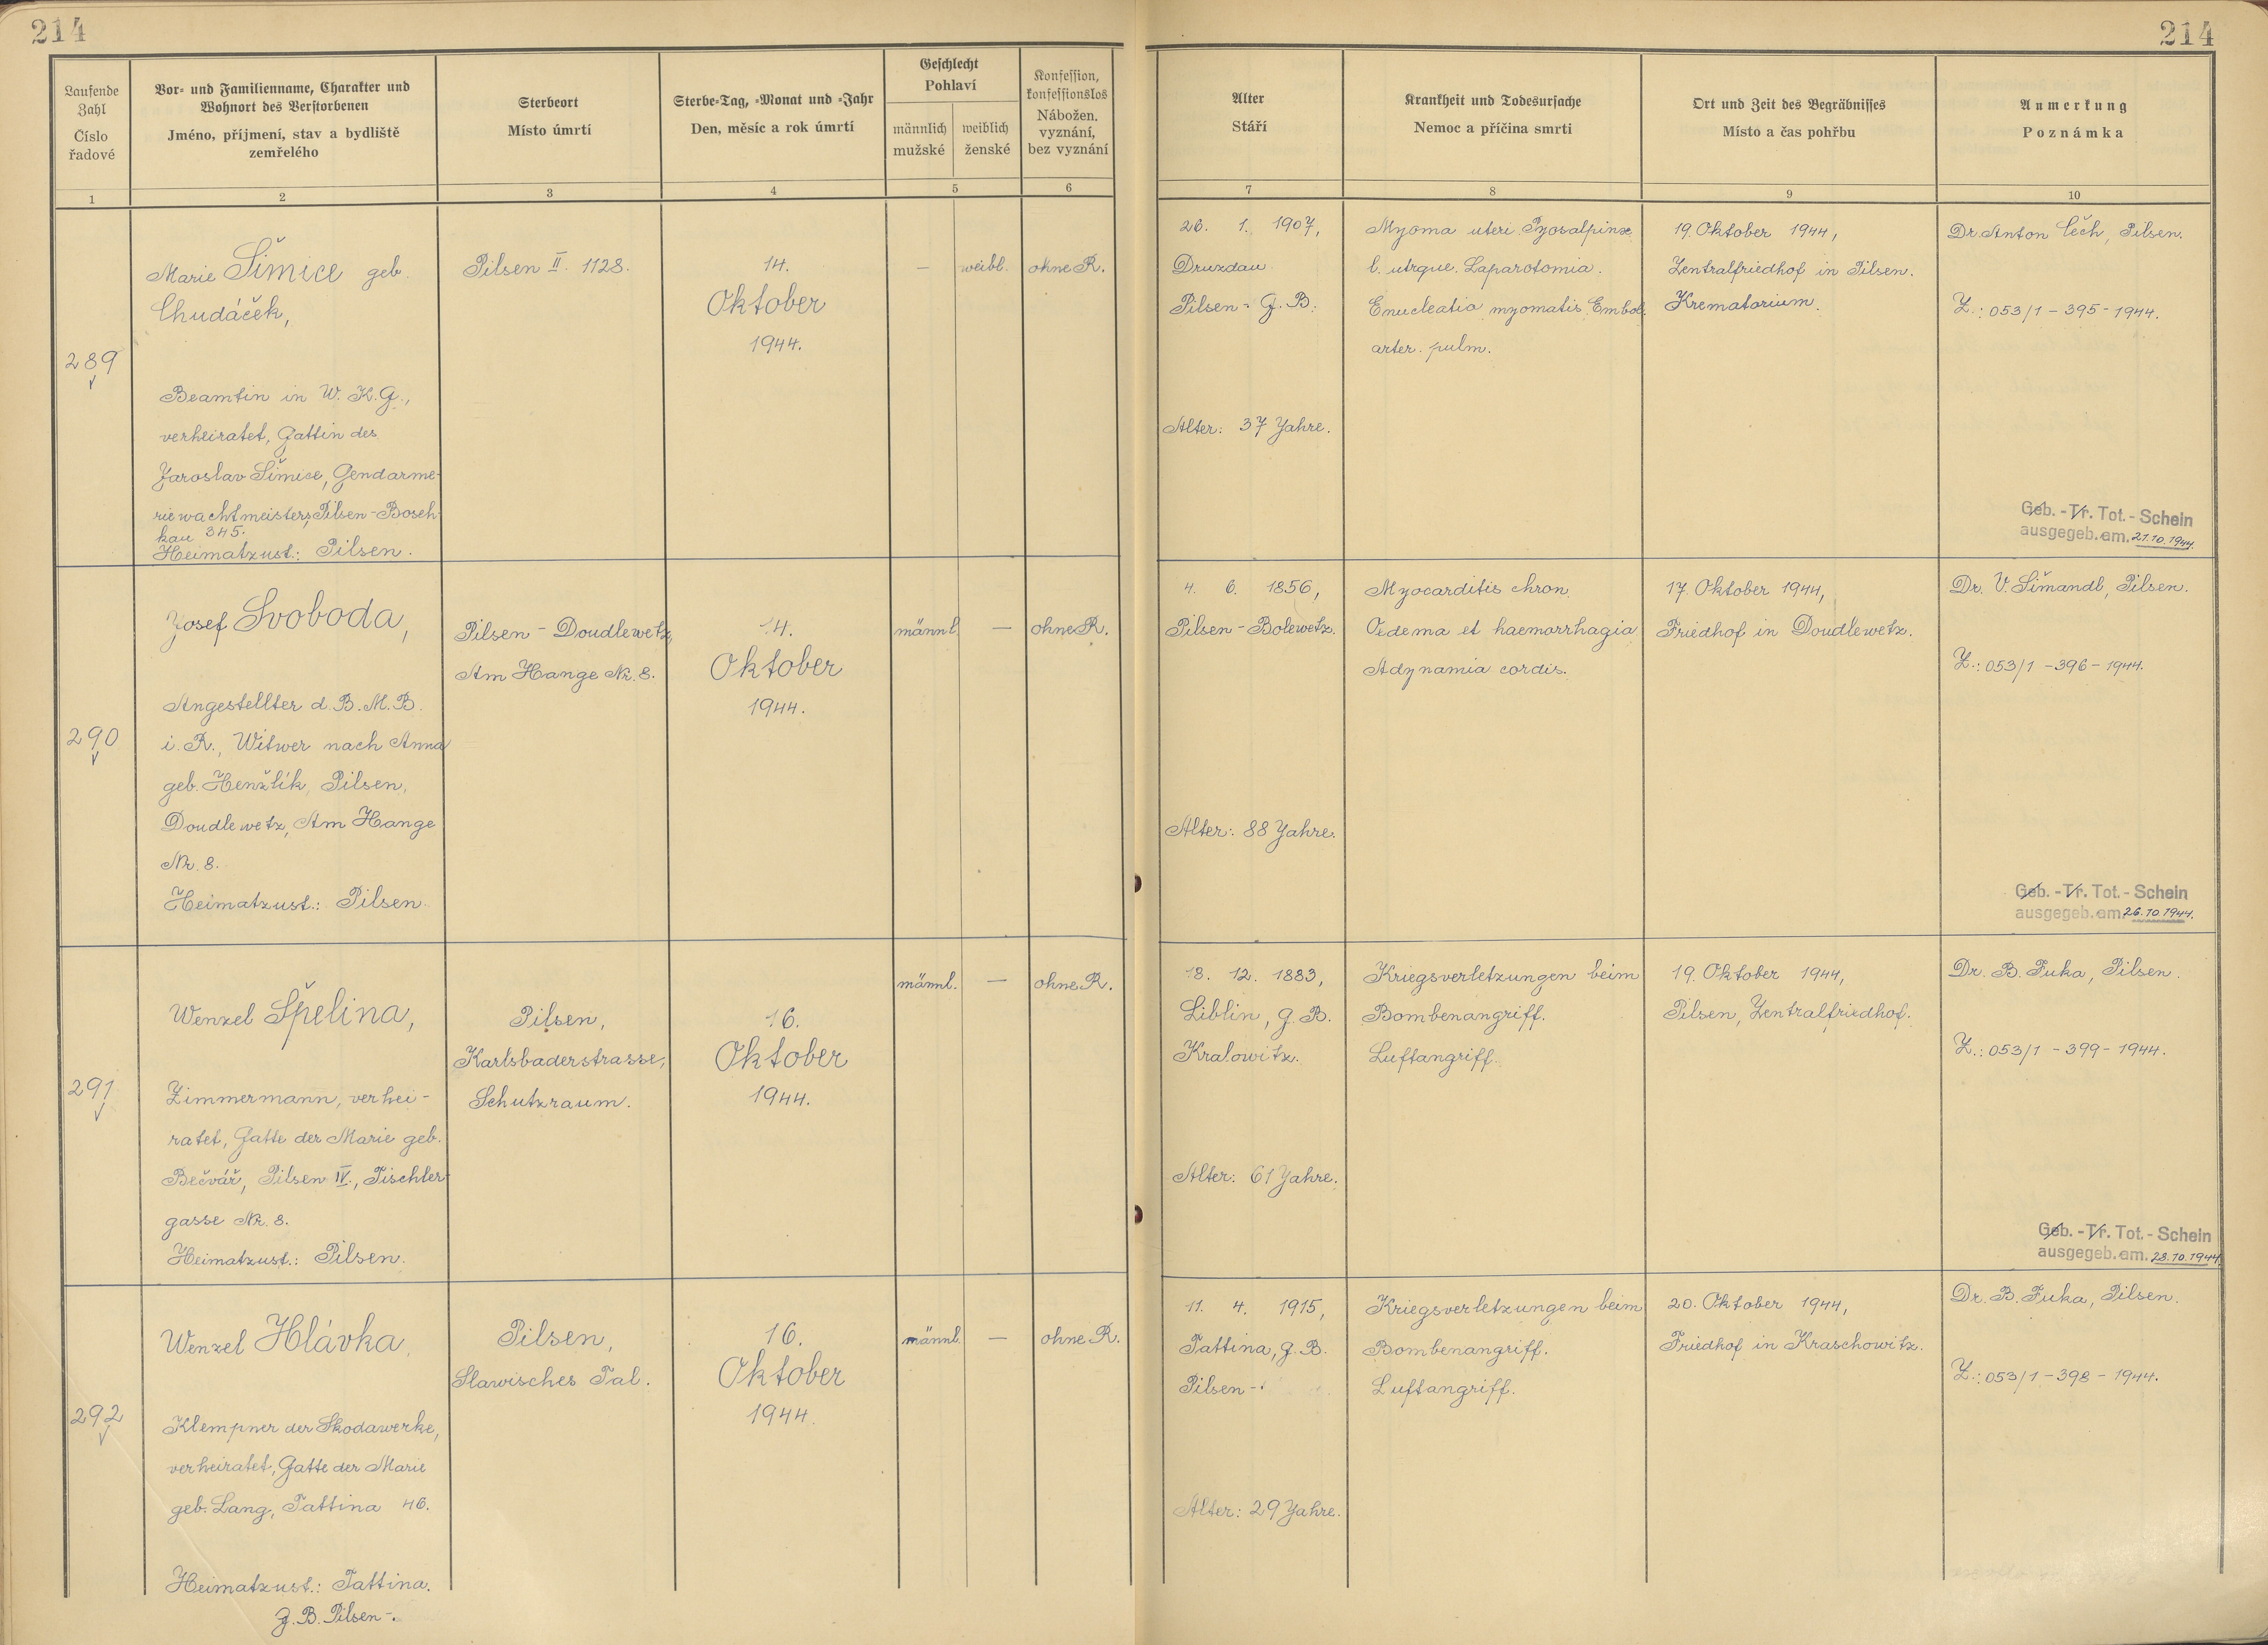 214
214
Laufende Zahl
Číslo řadové
Vor- und Familienname, Charakter und
Wohnort des Verstorbenen
Jméno, příjmení, stav a bydliště
zemřelého
Sterbeort
Místo úmrtí
Sterbe-Tag, -Monat und -Jahr
Den, měsíc a rok úmrtí
Geschlecht
Pohlaví
männlich
mužské
weiblich
ženské
Konfession,
konfessionslos
Nábožen.
vyznání,
bez vyznání
Alter
Stáří
Krankheit und Todesursache
Nemoc a příčina smrti
Ort und Zeit des Begräbnisses
Místo a čas pohřbu
Anmerkung
Poznámka
1 2 3 4 5 6 7 8 9 10
289
Marie Šimice geb.
Chudáček,
Beamtin in W. K. G.,
verheiratet, Gattin des
Jaroslav Šimice, Gendarme-
riewachtmeisters, Pilsen-Bosch-
kau 345.
Heimatzust.: Pilsen.
Pilsen II. 1128.
14.
Oktober
1944.
–
weibl.
ohne R.
26. 1. 1907,
Druzdau
Pilsen - G. B.
Alter: 37 Jahre.
Myoma uteri. Pyosalpinx
l. utrque. Laparotomia.
Enucleatio myomatis. Embol.
arter. pulm.
19. Oktober 1944,
Zentralfriedhof in Pilsen.
Krematorium.
Dr. Anton Čech, Pilsen.
Z.: 053/1 - 395 - 1944.
Geb. - Tr. Tot. - Schein
ausgegeb. am. 21.10.1944.
290
Josef Svoboda,
Angestellter d. B. M. B.
i. R., Witwer nach Anna
geb. Henžlík, Pilsen,
Doudlewetz, Am Hange
Nr. 8.
Heimatzust.: Pilsen.
Pilsen - Doudlewetz,
Am Hange Nr. 8.
14.
Oktober
1944.
männl.
–
ohne R.
4. 6. 1856,
Pilsen - Bolewetz.
Alter: 88 Jahre.
Myocarditis chron.
Oedema et haemorrhagia
Adynamia cordis.
17. Oktober 1944,
Friedhof in Doudlewetz.
Dr. V. Šimandl, Pilsen.
Z.: 053/1 - 396 - 1944.
Geb. - Tr. Tot. - Schein
ausgegeb. am. 26.10.1944.
291
Wenzel Špelina,
Zimmermann, verhei-
ratet, Gatte der Marie geb.
Bečvář, Pilsen IV., Tischler-
gasse Nr. 8.
Heimatzust.: Pilsen.
Pilsen,
Karlsbaderstrasse,
Schutzraum.
16.
Oktober
1944.
männl.
–
ohne R.
18. 12. 1883,
Liblin, G. B.
Kralowitz.
Alter: 61 Jahre.
Kriegsverletzungen beim
Bombenangriff.
Luftangriff.
19. Oktober 1944,
Pilsen, Zentralfriedhof.
Dr. B. Fuka, Pilsen.
Z.: 053/1 - 399 - 1944.
Geb. - Tr. Tot. - Schein
ausgegeb. am. 28.10.1944
292
Wenzel Hlávka,
Klempner der Skodawerke,
verheiratet, Gatte der Marie
geb. Lang, Tattina 46.
Heimatzust.: Tattina.
G. B. Pilsen -.
Pilsen,
Slawisches Tal.
16.
Oktober
1944.
männl.
–
ohne R.
11. 4. 1915,
Tattina, G. B.
Pilsen -.
Alter: 29 Jahre.
Kriegsverletzungen beim
Bombenangriff.
Luftangriff.
20. Oktober 1944,
Friedhof in Kraschowitz.
Dr. B. Fuka, Pilsen.
Z.: 053/1 - 398 - 1944.